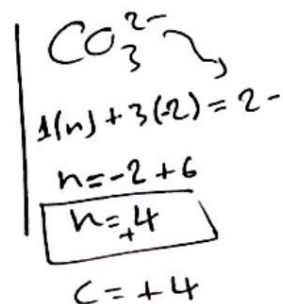 CO₃²⁻
1(n) + 3(-2) = 2-
n = -2 + 6
n = +4
C = +4